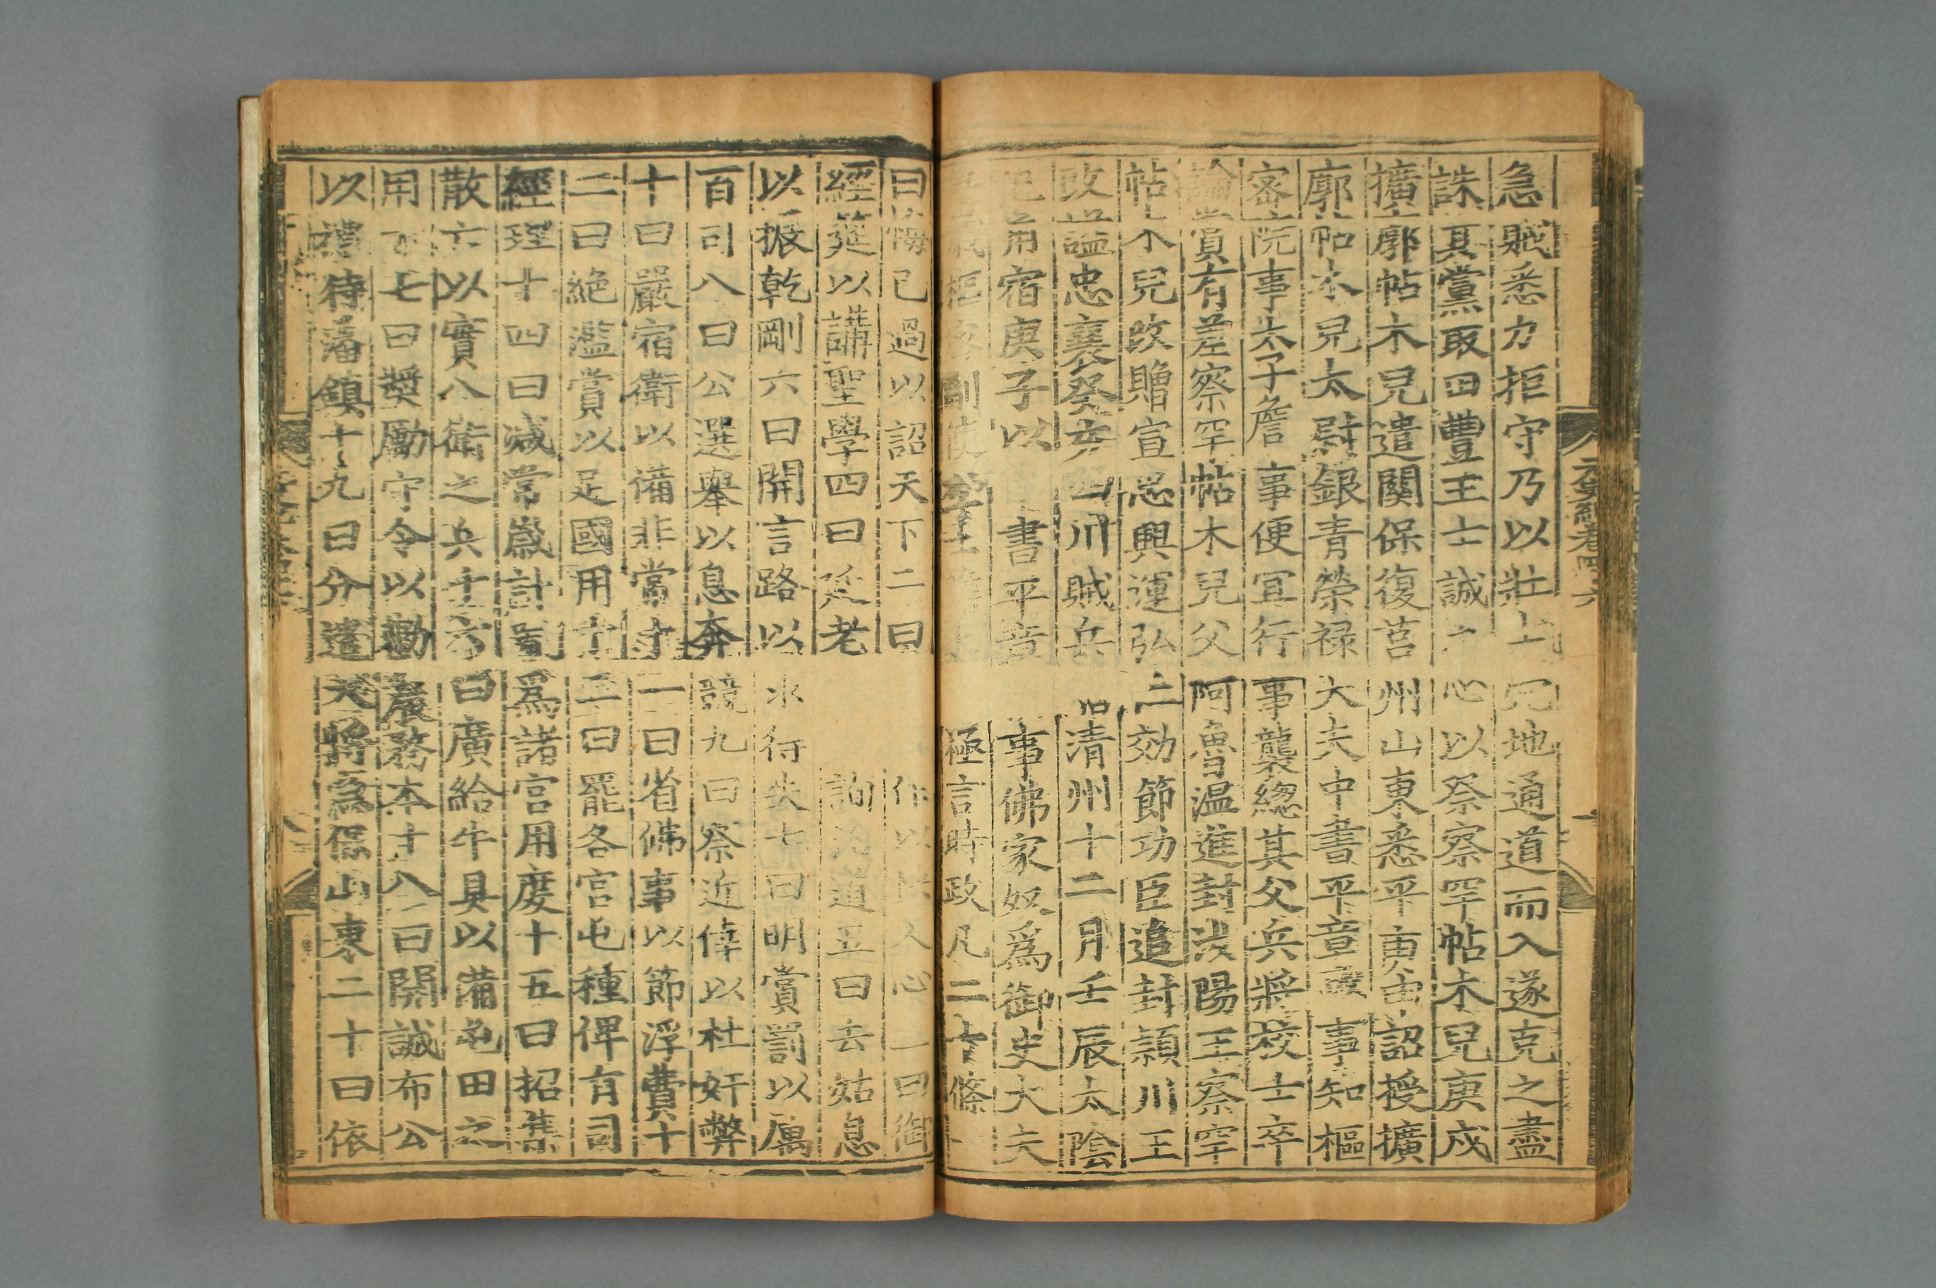 急賊悉力拒守乃以壯士穴地通道而入遂克之盡
誅其黨取田豐王士誠之心以祭察罕帖木兒庚戍
擴廓帖木兒遣關保復莒州山東悉平庚申詔授擴
廓帖木兒太尉銀青榮禄大夫中書平章政事知樞
密院事太子詹事便冝行事襲緫其父兵將校士卒
論賞有差察罕帖木兒父阿魯温進封汝陽王察罕
帖木兒改贈宣忠興運弘仁効節功臣追封頴川王
改謚忠襄癸亥四川賊兵陷清州十二月壬辰太陰
犯角宿庚子以中書平章事佛家奴爲御史大夫
樞密副使 極言時政凡二十條一
曰悔己過以詔天下二曰 作以快人心一曰御
經筵以講聖學四曰延老 詢治道五曰去姑息
以振乾剛六曰開言路以求得失七曰明賞罰以厲
百司八曰公選舉以息奔競九曰察近倖以杜奸弊
十曰嚴宿衛以備非常十一曰省佛事以節浮費十
二曰絶濫賞以足國用十三曰罷各宫屯種俾有司
經理十四曰减常歲計置爲諸宫用度十五曰招集
散亡以實八衛之兵十六曰廣給牛具以備屯田之
用十七曰奬勵守令以勸農務本十八曰開誠布公
以禮待藩鎮十九曰分遣大將急保山東二十曰依
元史紀卷四十六